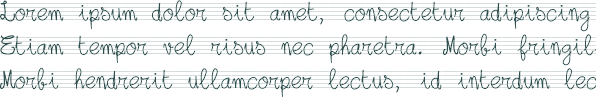 Lorem ipsum dolor sit amet, consectetur adipiscing
Etiam tempor vel risus nec pharetra. Morbi fringil
Morbi hendrerit ullamcorper lectus, id interdum lec